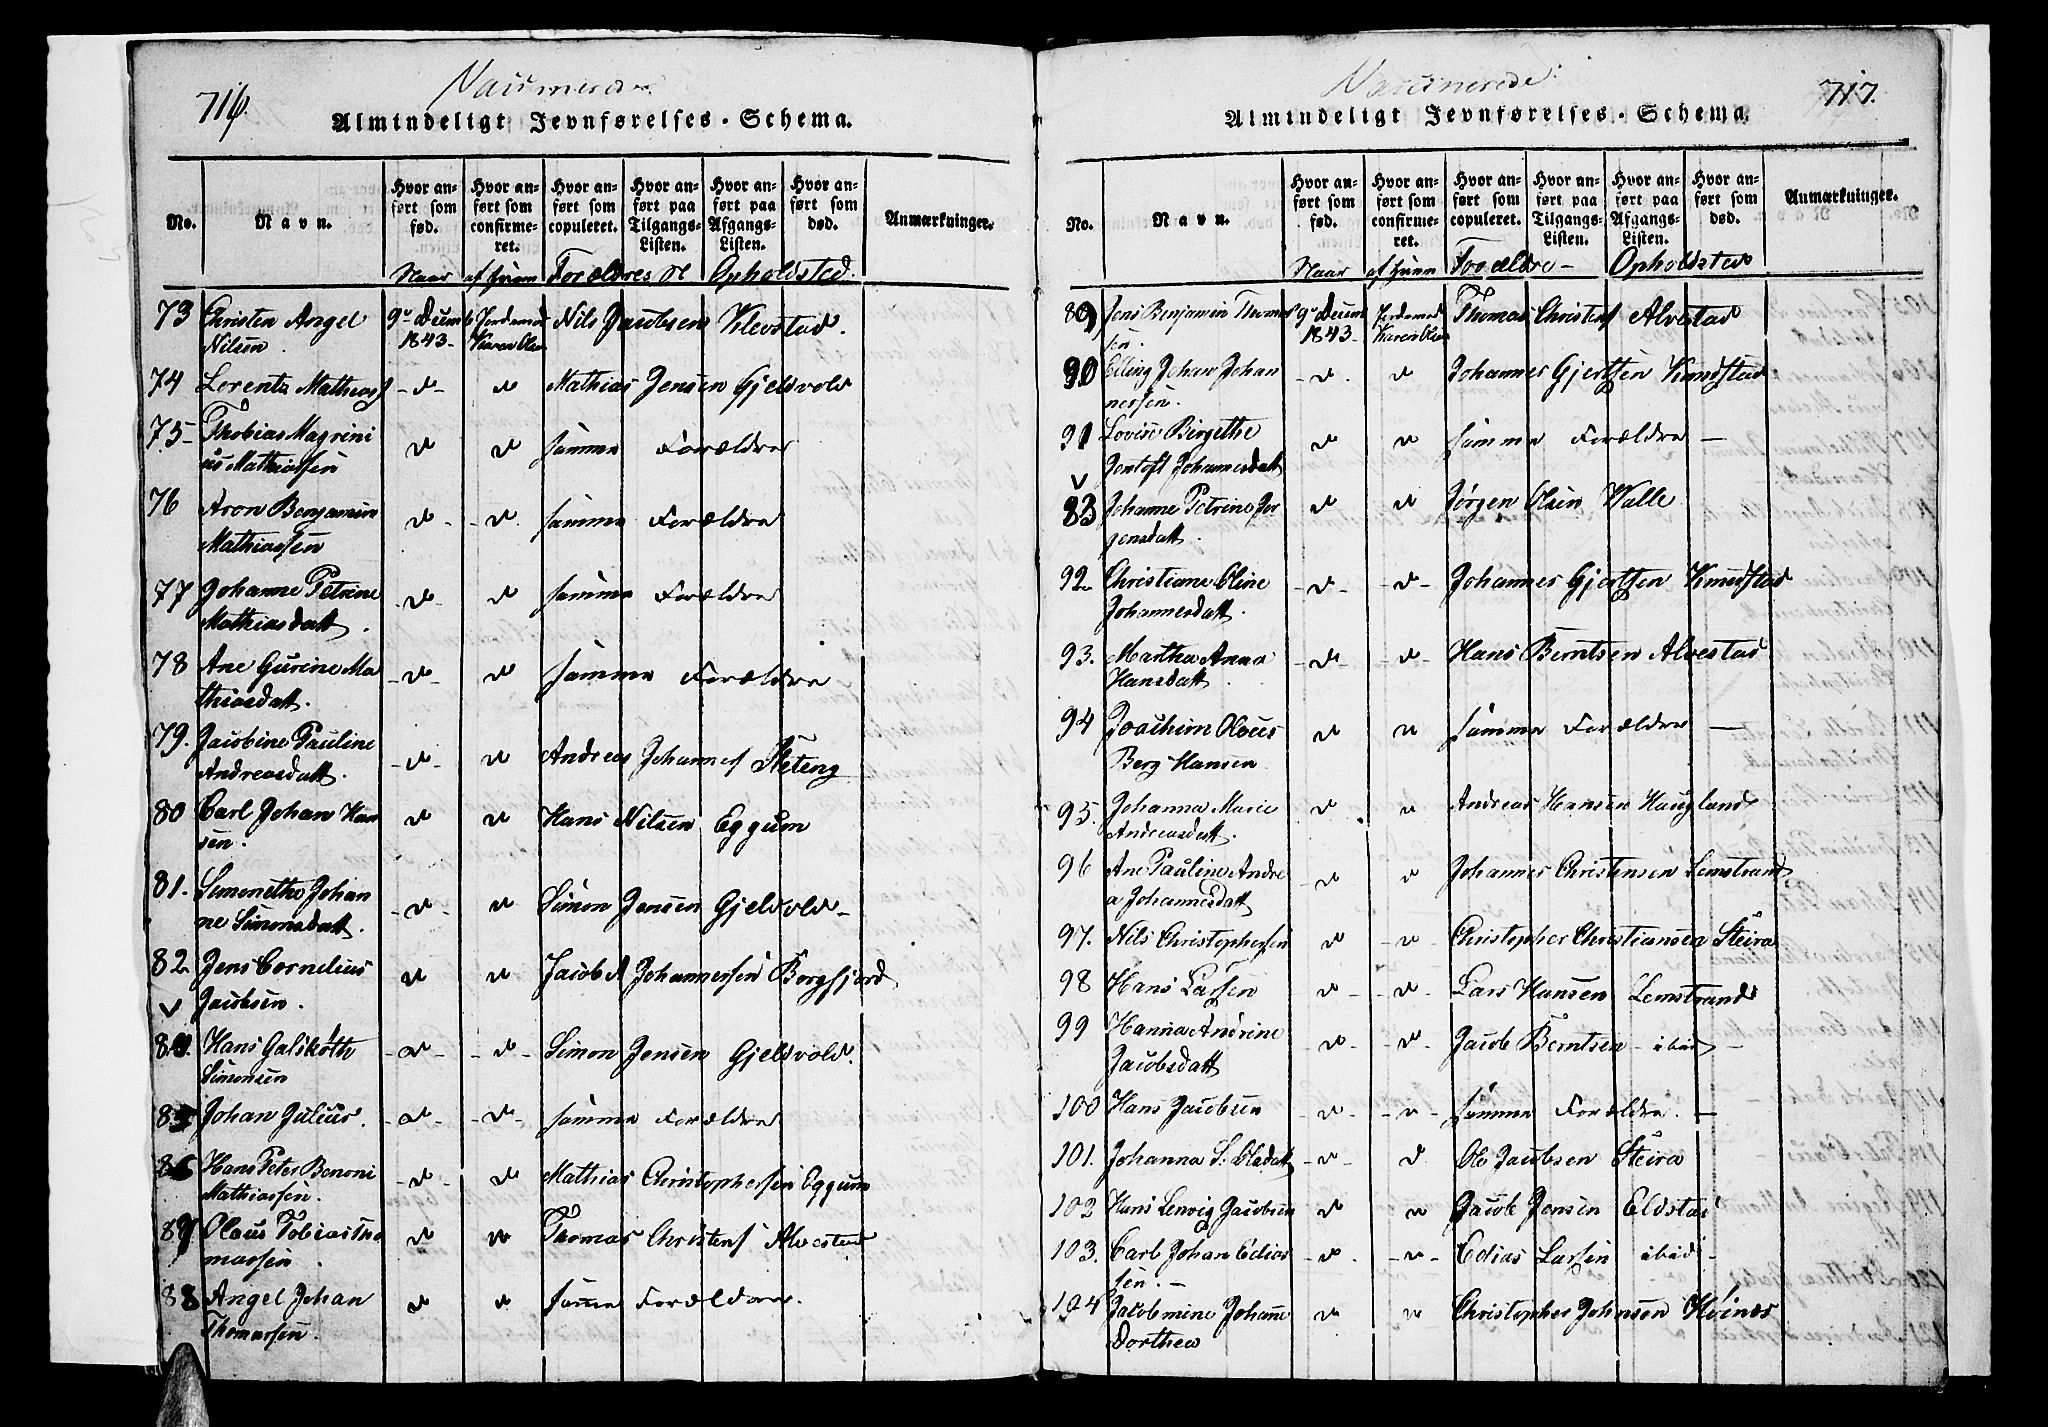 716.
Vaccinerede
Almindeligt Jevnførelses-Schema.
No. Navn. Hvor anført som fød. Hvor anført som confirmeret. Hvor anført som copuleret. Hvor anført paa Tilgangs-Listen. Hvor anført paa Afgangs-Listen. Hvor anført som død. Anmærkninger.
Naar af hvem Forældres Opholdsted.
73 Christen Angel 9de Decemb Jordemod Nils Jacobsen Klevstad.
Nilsen. 1843- Karen Olsen
74 Lorentz Mathiass -d- d Mathias Jensen Gjeldvold
75- Thobias Magrini d d samme Forældre
us Mathiassen
76 Aron Benjamin d- -d. samme Forældre
Mathiassen
77 Johanne Petrine -d- d samme Forældre
Mathiasdatt.
78 Ane Gurine Ma -d- d samme Forældre
thiasdatt.
79. Jacobine Pauline -d- d Andreas Johannes
Andreasdatt.
80 Carl Johan Han d d Hans Nilsen Eggum
sen.
81. Simonetha Johan -d- d Simon Jensen Gjeldvold-
ne Simonsdatt.
82 Jens Cornelius d d Jacob A Johannessen Borgfjord
v Jacobsen.
84. Hans Galskøth -d- -d- Simon Jensen Gjeldvold.
Simonsen
85 Johan Julius. -d- -d- samme Forældre
86 Hans Peter Benoni -d- d Mathias Christophersen Eggum
Mathiassen.
87 Olaus Tobias Tho d d Thomas Christens Alvestad
massen.
88 Angel Johan d d samme Forældre.
Thomassen.
717.
Vaccinerede
Almindeligt Jevnførelses-Schema.
No. Navn. Hvor anført som fød. Hvor anført som confirmeret. Hvor anført som copuleret. Hvor anført paa Tilgangs-Listen. Hvor anført paa Afgangs-Listen. Hvor anført som død. Anmærkninger.
Naar af hvem Forældre- Opholdsted
89 Jens Benjamin Thomas 9de Decem Jordemod Thomas Christens Alvestad
sen. 1843- Karen Olsen
90 Elling Johan Johan -d. d Johannes Gjertsen Knudstad
nessen.
91 Lovise Birgethe d d samme Forældre -
v Jentoft Johannesdatt
83 Johanne Petrine Jør d d Jørgen Olsen Valle
gensdatt.
92 Christiane Oline -d- -d- Johannes Gjertsen Knudstad
Johannesdatt.
93. Martha Anna -d- -d- Hans Berntsen Alvestad
Hansdatt.
94 Joachim Olaus d d samme Forældre -
Berg Hansen
95. Johanna Marie d d Andreas Hansen Haugland
Andreasdatt.
96 Ane Pauline Andre -d d Johannes Christensen Lemstrand
a Johannesdatt
97. Nils Christophersen d -d Christopher Christiansen Steira
98 Hans Larsen d- -d- Lars Hansen Lemstrand
99 Hanna Andrine d- -d- Jacob Berntsen - ibid -
Jacobsdatt
100 Hans Jacobsen -d- -d- samme Forældre. -
101. Johanna S. Olsdatt -d- d Ole Jacobsen Steira
102 Hans Lenvig Jacobsen d d Jacob Jensen Eldstad
103. Carl Johan Edias d. -d- Edias Larsen ibid -
sen. -
104 Jacobmine Johanne d d Christopher Johnsen
Dorthea